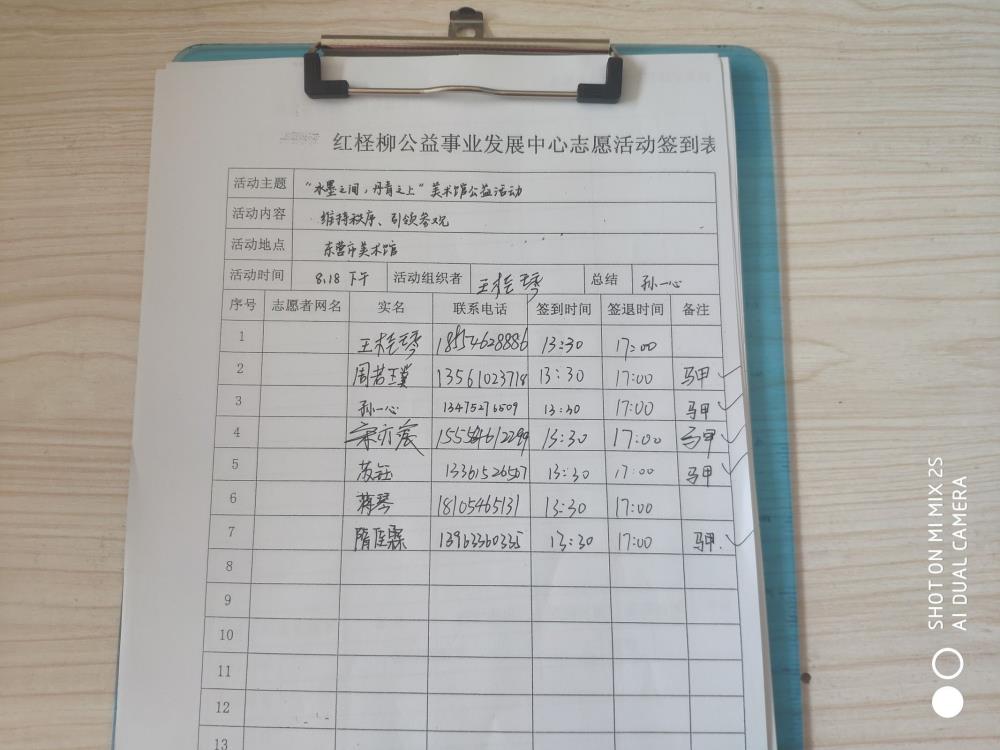 红柽柳公益事业发展中心志愿活动签到表
活动主题 "水墨之间，丹青之上"美术馆公益活动
活动内容 维持秩序、引领参观
活动地点 东营市美术馆
活动时间 8.18 下午 活动组织者 王桂琴 总结 孙一心
序号 志愿者网名 实名 联系电话 签到时间 签退时间 备注
1 王桂琴 18554628886 13:30 17:00
2 周若 13561023718 13:30 17:00 马甲
3 孙一心 13475276509 13:30 17:00 马甲
4 13:30 17:00 马甲
5 13361526507 13:30 17:00 马甲
6 蒋琴 18105465131 13:30 17:00
7 13963360335 13:30 17:00 马甲
8
9
10
11
12
13
SHOT ON MI MIX 2S
AI DUAL CAMERA